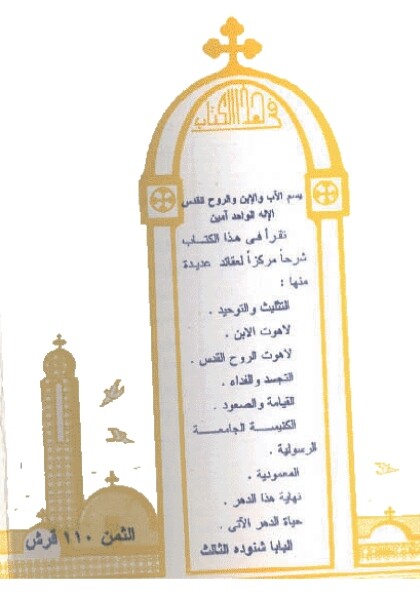 فى هذا الكتاب
بسم الآب والإبن والروح القدس
الإله الواحد آمين
تقرأ فى هذا الكتــاب
شرحاً مركزاً لعقائد عديدة
منها :
التثليث والتوحيد .
لاهوت الابن .
لاهوت الروح القدس .
التجسد والفداء .
القيامة والصعود .
الكنيســة الجامعــة
الرسولية .
المعمودية .
نهاية هذا الدهر .
حياة الدهر الآتى .
البابا شنوده الثالث
الثمن ١١٠ قرش